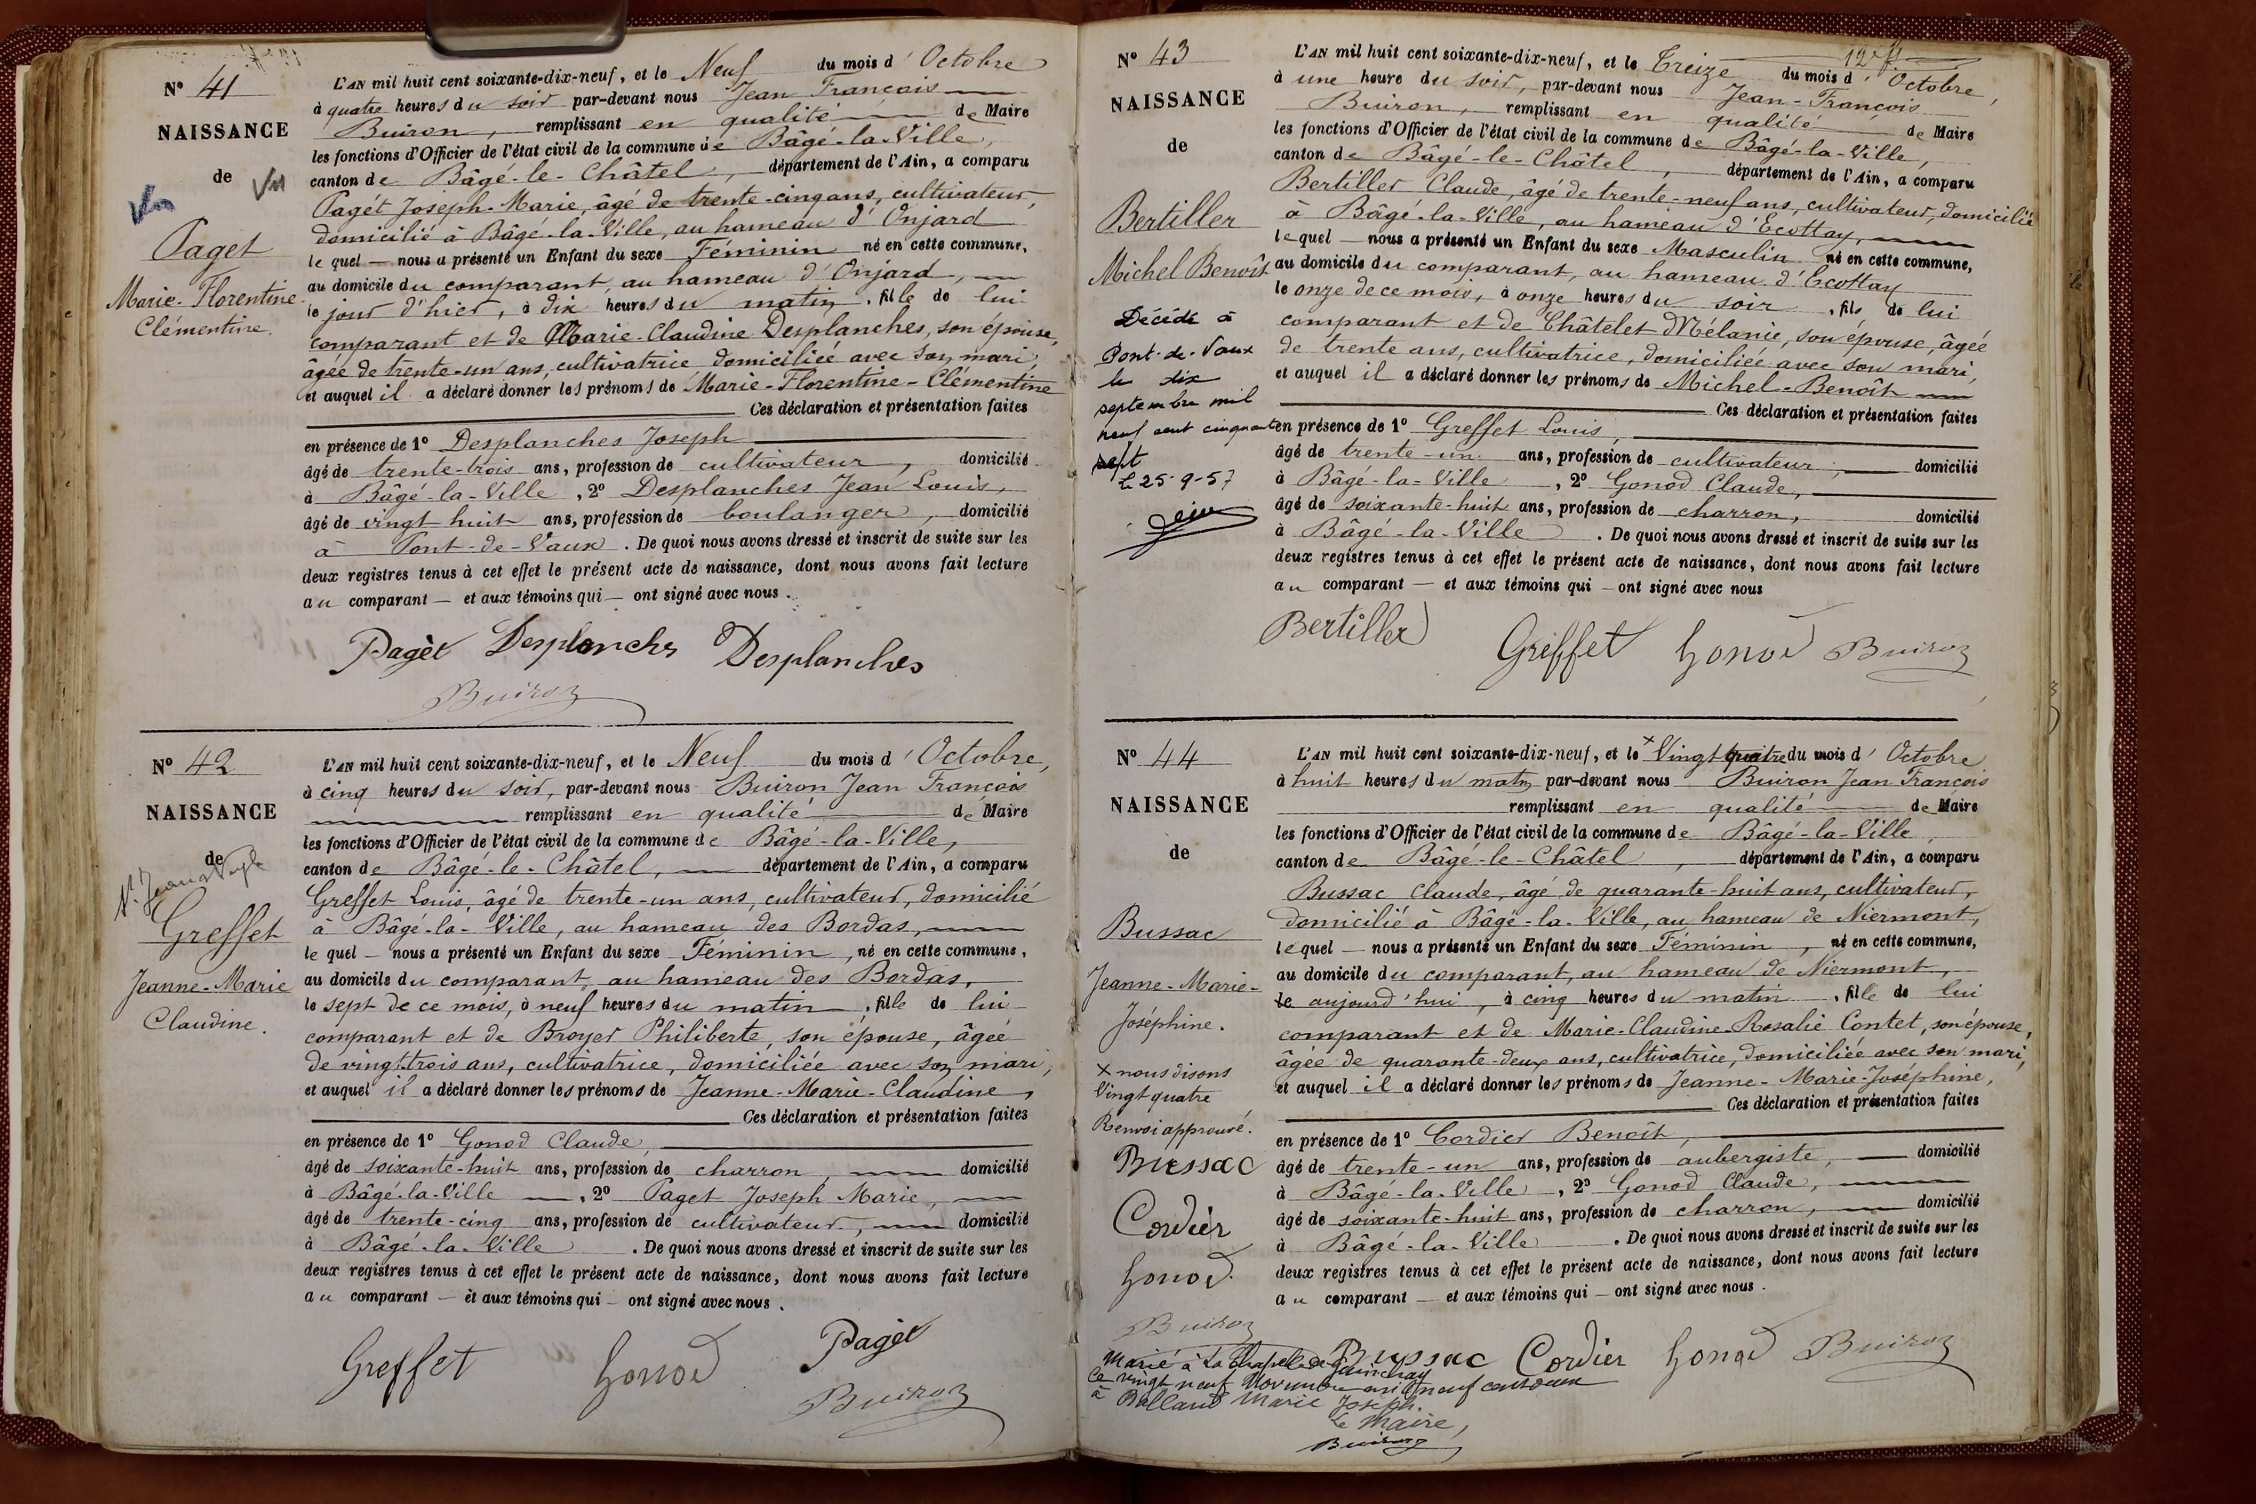 N° 41
NAISSANCE
de
Vu
Vu
Paget
Marie-Florentine
Clémentine.
L'AN mil huit cent soixante-dix-neuf, et le Neuf du mois d'Octobre
à quatre heures du soir par-devant nous Jean François
Buiron, remplissant en qualité de Maire
les fonctions d'Officier de l'état civil de la commune de Bâgé-la-Ville,
canton de Bâgé-le-Châtel, département de l'Ain, a comparu
Pagét Joseph-Marie, âgé de trente-cinq ans, cultivateur,
domicilié à Bâgé-la-Ville, au hameau d'Onjard
le quel — nous a présenté un Enfant du sexe Féminin né en cette commune,
au domicile du comparant, au hameau d'Onjard,
le jour d'hier, à dix heures du matin, fille de lui
comparant et de Marie-Claudine Desplanches, son épouse,
âgée de trente-un ans, cultivatrice domiciliée avec son mari
et auquel il a déclaré donner les prénoms de Marie-Florentine-Clémentine
Ces déclaration et présentation faites
en présence de 1° Desplanches Joseph
âgé de trente-trois ans, profession de cultivateur, domicilié
à Bâgé-la-Ville, 2° Desplanches Jean Louis,
âgé de vingt huit ans, profession de boulanger, domicilié
à Pont-de-Vaux. De quoi nous avons dressé et inscrit de suite sur les
deux registres tenus à cet effet le présent acte de naissance, dont nous avons fait lecture
au comparant — et aux témoins qui — ont signé avec nous.
Pagèt Desplanchs Desplanches
Buiron
N° 42
NAISSANCE
de
Greffet
Jeanne-Marie
Claudine.
L'AN mil huit cent soixante-dix-neuf, et le Neuf du mois d'Octobre,
à cinq heures du soir, par-devant nous Buiron Jean François
remplissant en qualité de Maire
les fonctions d'Officier de l'état civil de la commune de Bâgé-la-Ville,
canton de Bâgé-le-Châtel, département de l'Ain, a comparu
Greffet Louis, âgé de trente-un ans, cultivateur, domicilié
à Bâgé-la-Ville, au hameau des Bordas,
le quel — nous a présenté un Enfant du sexe Féminin, né en cette commune,
au domicile du comparant, au hameau des Bordas,
le sept de ce mois, à neuf heures du matin, fille de lui
comparant et de Broyer Philiberte, son épouse, âgée
de vingt-trois ans, cultivatrice, domiciliée avec son mari,
et auquel il a déclaré donner les prénoms de Jeanne-Marie-Claudine,
Ces déclaration et présentation faites
en présence de 1° Gonod Claude,
âgé de soixante-huit ans, profession de charron, domicilié
à Bâgé-la-Ville, 2° Paget Joseph Marie,
âgé de trente-cinq ans, profession de cultivateur, domicilié
à Bâgé-la-Ville. De quoi nous avons dressé et inscrit de suite sur les
deux registres tenus à cet effet le présent acte de naissance, dont nous avons fait lecture
au comparant — et aux témoins qui — ont signé avec nous.
Greffet Gonod Pagèt
Buiron
N° 43
NAISSANCE
de
Bertiller
Michel Benoît
Décédé à
Pont-de-Vaux
le dix
septembre mil
neuf cent cinquante
sept
Le 25-9-57
L'AN mil huit cent soixante-dix-neuf, et le Treize du mois d'Octobre,
à une heure du soir, par-devant nous Jean-François
Buiron, remplissant en qualité de Maire
les fonctions d'Officier de l'état civil de la commune de Bâgé-la-Ville,
canton de Bâgé-le-Châtel, département de l'Ain, a comparu
Bertiller Claude, âgé de trente-neuf ans, cultivateur, domicilié
à Bâgé-la-Ville, au hameau d'Ecottay,
le quel — nous a présenté un Enfant du sexe Masculin né en cette commune,
au domicile du comparant, au hameau d'Ecottay
le onze de ce mois, à onze heures du soir, fils de lui
comparant et de Châtelet Mélanie, son épouse, âgée
de trente ans, cultivatrice, domiciliée avec son mari,
et auquel il a déclaré donner les prénoms de Michel-Benoît
Ces déclaration et présentation faites
en présence de 1° Greffet Louis,
âgé de trente-un ans, profession de cultivateur, domicilié
à Bâgé-la-Ville, 2° Gonod Claude,
âgé de soixante-huit ans, profession de charron, domicilié
à Bâgé-la-Ville. De quoi nous avons dressé et inscrit de suite sur les
deux registres tenus à cet effet le présent acte de naissance, dont nous avons fait lecture
au comparant — et aux témoins qui — ont signé avec nous
Bertiller Greffet Gonod Buiron
N° 44
NAISSANCE
de
Bussac
Jeanne-Marie-
Joséphine.
x nous disons
Vingt quatre
Renvoi approuvé.
Bussac
Cordier
Gonod
Buiron
L'AN mil huit cent soixante-dix-neuf, et le x Vingt quatre du mois d'Octobre
à huit heures du matin par-devant nous Buiron Jean François
remplissant en qualité de Maire
les fonctions d'Officier de l'état civil de la commune de Bâgé-la-Ville,
canton de Bâgé-le-Châtel, département de l'Ain, a comparu
Bussac Claude, âgé de quarante-huit ans, cultivateur,
domicilié à Bâgé-la-Ville, au hameau de Niermont,
le quel — nous a présenté un Enfant du sexe Féminin, né en cette commune,
au domicile du comparant, au hameau de Niermont,
le aujourd'hui, à cinq heures du matin, fille de lui
comparant et de Marie-Claudine-Rosalie Contet, son épouse,
âgée de quarante-deux ans, cultivatrice, domiciliée avec son mari,
et auquel il a déclaré donner les prénoms de Jeanne-Marie-Joséphine,
Ces déclaration et présentation faites
en présence de 1° Cordier Benoît,
âgé de trente-un ans, profession de aubergiste, domicilié
à Bâgé-la-Ville, 2° Gonod Claude,
âgé de soixante-huit ans, profession de charron, domicilié
à Bâgé-la-Ville. De quoi nous avons dressé et inscrit de suite sur les
deux registres tenus à cet effet le présent acte de naissance, dont nous avons fait lecture
au comparant — et aux témoins qui — ont signé avec nous.
Bussac Cordier Gonod Buiron
Marié à La Chapelle de Guinchay
le vingt neuf Novembre mil neuf cent deux
à Balland Marie Joseph.
Le Maire,
Buiron